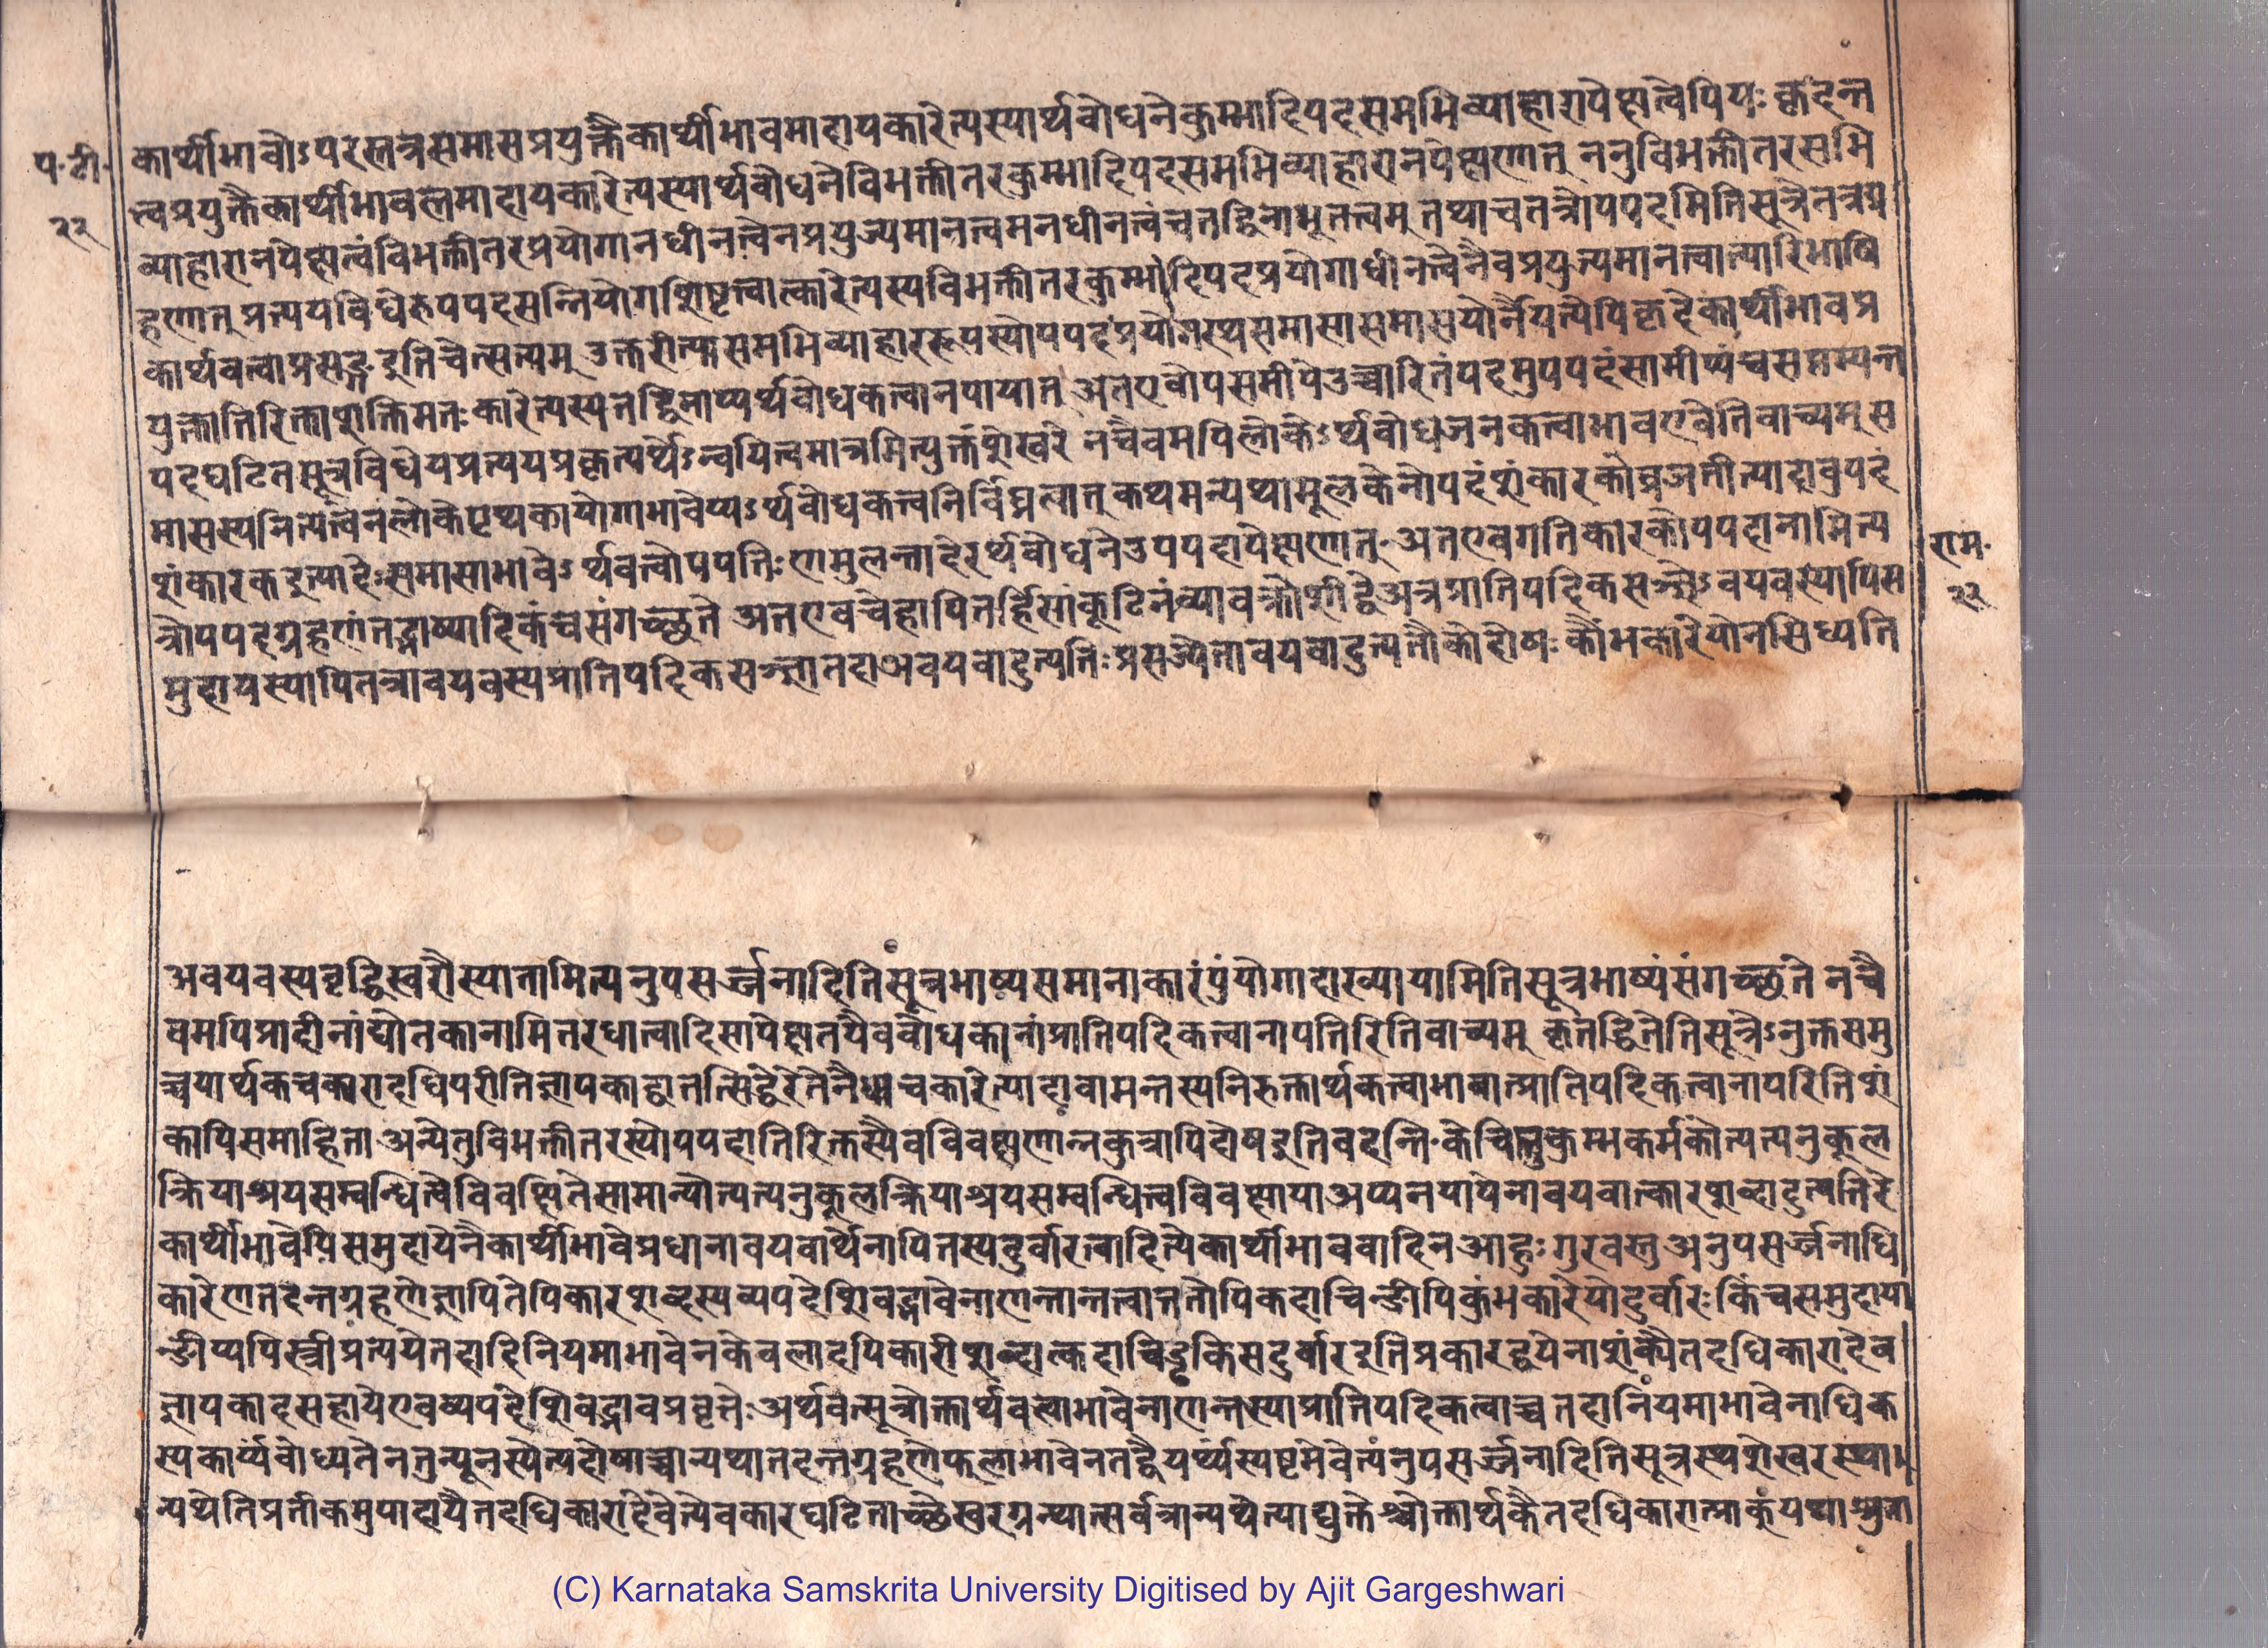 प॰टी॰
२२
कार्थीभावोऽपरस्तत्रसमासप्रयुक्तैकार्थीभावमादायकारेत्यस्यार्थबोधनेकुम्भादिपदसमभिव्याहारापेक्षत्वेपियः कृदन्त
त्त्वप्रयुक्तैकार्थीभावस्तमादायकारेत्यस्यार्थबोधनेविभक्तीतरकुम्भादिपदसमभिव्याहारानपेक्षणात् ननुविभक्तीतरसमभि
व्याहारानपेक्षत्वंविभक्तीतरप्रयोगानधीनत्वेनप्रयुज्यमानत्वमनधीनत्वंचतद्विनाभूतत्त्वम् तथाचतत्रोपपदमितिसूत्रेतत्रग्र
हणात् प्रत्ययविधेरुपपदसन्नियोगशिष्टत्वात्कारेत्यस्यविभक्तीतरकुम्भादिपदप्रयोगाधीनत्वेनैवप्रयुज्यमानत्वात्पारिभाषि
कार्थवत्वाप्रसङ्गइतिचेत्सत्यम् उक्तरीत्यासमभिव्याहाररूपस्योपपदप्रयोगस्यसमासासमासयोर्नैयत्येपिकृदेकार्थीभावप्र
युक्तातिरिक्तशक्तिमतःकारेत्यस्यतद्विनाप्यर्थबोधकत्वानपायात् अतएवोपसमीपेउच्चारितंपदमुपपदंसामीप्यंचसप्तम्यन्त
पदघटितसूत्रविधेयप्रत्ययप्रकृत्यर्थेऽन्वयित्वमात्रमित्युक्तंशेखरे नचैवमपिलोकेऽर्थबोधजनकत्वाभावएवेतिवाच्यम् स
मासस्यनित्यत्वेनलोकेपृथकायोगाभावेप्यऽर्थबोधकत्त्वनिर्विघ्नत्वात् कथमन्यथामूलकेनोपदंशंकारकोव्रजतीत्यादावुपदं
शंकारकइत्यादेःसमासाभावेऽर्थवत्वोपपत्तिःणमुलन्तादेरर्थबोधनेउपपदापेक्षणात्॰अतएवगतिकारकोपपदानामित्य
त्रोपपदग्रहणंतद्भाष्यादिकंचसंगच्छते अतएवचेहापितर्हिसांकूटिनंव्यावक्रोशीद्वेअत्रप्रातिपदिकसञ्ज्ञेऽवयवस्यापिस
मुदायस्यापितत्रावयवस्यप्रातिपदिकसञ्ज्ञातदाअवयवादुत्पत्तिः प्रसज्येतावयवादुत्पत्तौकोदोषः कौंभकारेयोनसिध्यति
राम॰
२२
अवयवस्यवृद्धिस्वरौस्यातामित्यनुपसर्ज्जनादितिसूत्रभाष्यसमानाकारंपुंयोगादाख्यायामितिसूत्रभाष्यंसंगच्छते नचै
वमपिप्रादीनांद्योतकानामितरधात्वादिसापेक्षतयैवबोधकानांप्रातिपदिकत्वानापत्तिरितिवाच्यम् कृत्तद्धितेतिसूत्रेऽनुक्तसमु
च्चयार्थकचकारादधिपरीतिज्ञापकाद्वातत्सिद्धेरेतेनैधाचकारेत्यादावामन्तस्यनिरुक्तार्थकत्वाभावात्प्रातिपदिकत्वानापत्तिरितिशं
कापिसमाहिता अन्येतुविभक्तीतरस्योपपदातिरिक्तस्यैवविवक्षणान्नकुत्रापिदोषइतिवदन्ति॰केचित्तुकुम्भकर्मकोत्पत्त्यनुकूल
क्रियाश्रयसम्बन्धित्वेविवक्षितेसामान्योत्पत्त्यनुकूलक्रियाश्रयसम्बन्धित्वविवक्षायाअप्यनपायेनावयवात्कारशब्दादुत्पत्तिरे
कार्थीभावेपिसमुदायेनैकार्थीभावेप्रधानावयवार्थेनापितस्यदुर्वारत्वादित्येकार्थीभाववादिनआहुःगुरवस्तुअनुपसर्ज्जनाधि
कारेणतदन्तग्रहणेज्ञापितेपिकारशब्दस्यव्यपदेशिवद्भावेनाणन्तान्तत्वात्ततोपिकदाचिन्ङीपिकुंभकारेयोदुर्वारःकिंचसमुदाया
न्ङीप्यपिस्त्रीप्रत्ययेतदादिनियमाभावेनकेवलादपिकारीशब्दात्कदाचिड्ढकिसदुर्वारइतिप्रकारद्वयेनाशंक्यैतदधिकारादेव
ज्ञापकादसहायेएवव्यपदेशिवद्भावप्रवृत्तेःअर्थवत्सूत्रोक्तार्थवत्त्वाभावेनाणन्तस्याप्रातिपदिकत्वाच्चतदानियमाभावेनाधिक
स्यकार्य्यंबोध्यतेनतुन्यूनस्येत्यदोषाच्चान्यथातदन्तग्रहणेफलाभावेनतद्वैयर्थ्यस्पष्टमेवेत्यनुपसर्ज्जनादितिसूत्रस्थशेखरस्था
न्यथेतिप्रतीकमुपादायैतदधिकारादेवेत्येवकारघटिताच्छेखरग्रन्थात्सर्वत्रान्यथेत्याद्युक्तेश्चोक्तार्थकैतदधिकारात्प्राकुंयथाश्रुता
(C) Karnataka Samskrita University Digitised by Ajit Gargeshwari